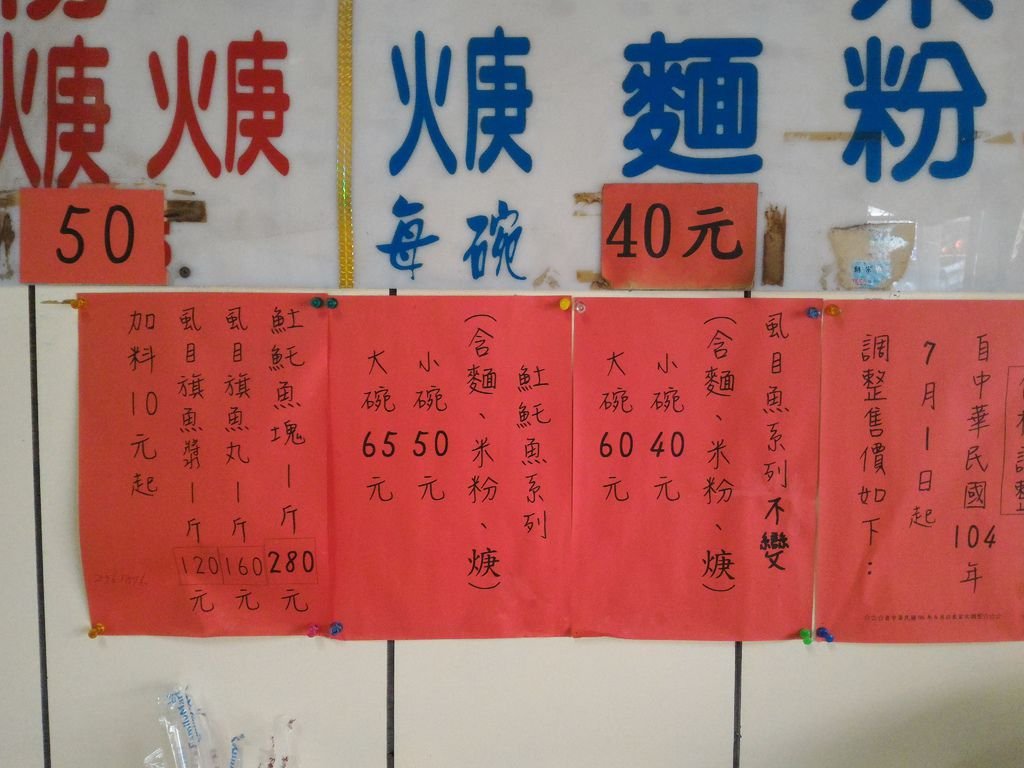 焿
焿
焿
麵
粉
50
每碗
40元
自中華民國104年
7月1日起
調整售價如下：
虱目魚系列不變
(含麵、米粉、焿)
小碗40元
大碗60元
𩵚魠魚系列
(含麵、米粉、焿)
小碗50元
大碗65元
𩵚魠魚塊一斤280元
虱目旗魚丸一斤160元
虱目旗魚漿一斤120元
加料10元起
FamilyMart